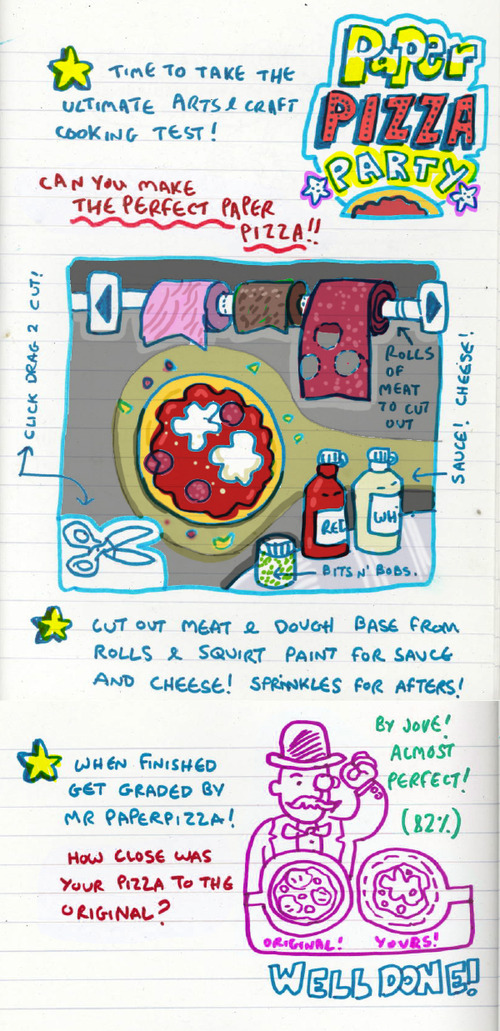 Paper
PIZZA
PARTY
TIME TO TAKE THE
ULTIMATE ARTS & CRAFT
COOKING TEST!
CAN YOU MAKE
THE PERFECT PAPER
PIZZA!!
CLICK DRAG 2 CUT!
ROLLS
OF
MEAT
TO CUT
OUT
SAUCE! CHEESE!
RED
WH
BITS N' BOBS.
CUT OUT MEAT & DOUGH BASE FROM
ROLLS & SQUIRT PAINT FOR SAUCE
AND CHEESE! SPRINKLES FOR AFTERS!
WHEN FINISHED
GET GRADED BY
MR PAPERPIZZA!
HOW CLOSE WAS
YOUR PIZZA TO THE
ORIGINAL?
BY JOVE!
ALMOST
PERFECT!
(82%)
ORIGINAL! YOURS!
WELL DONE!